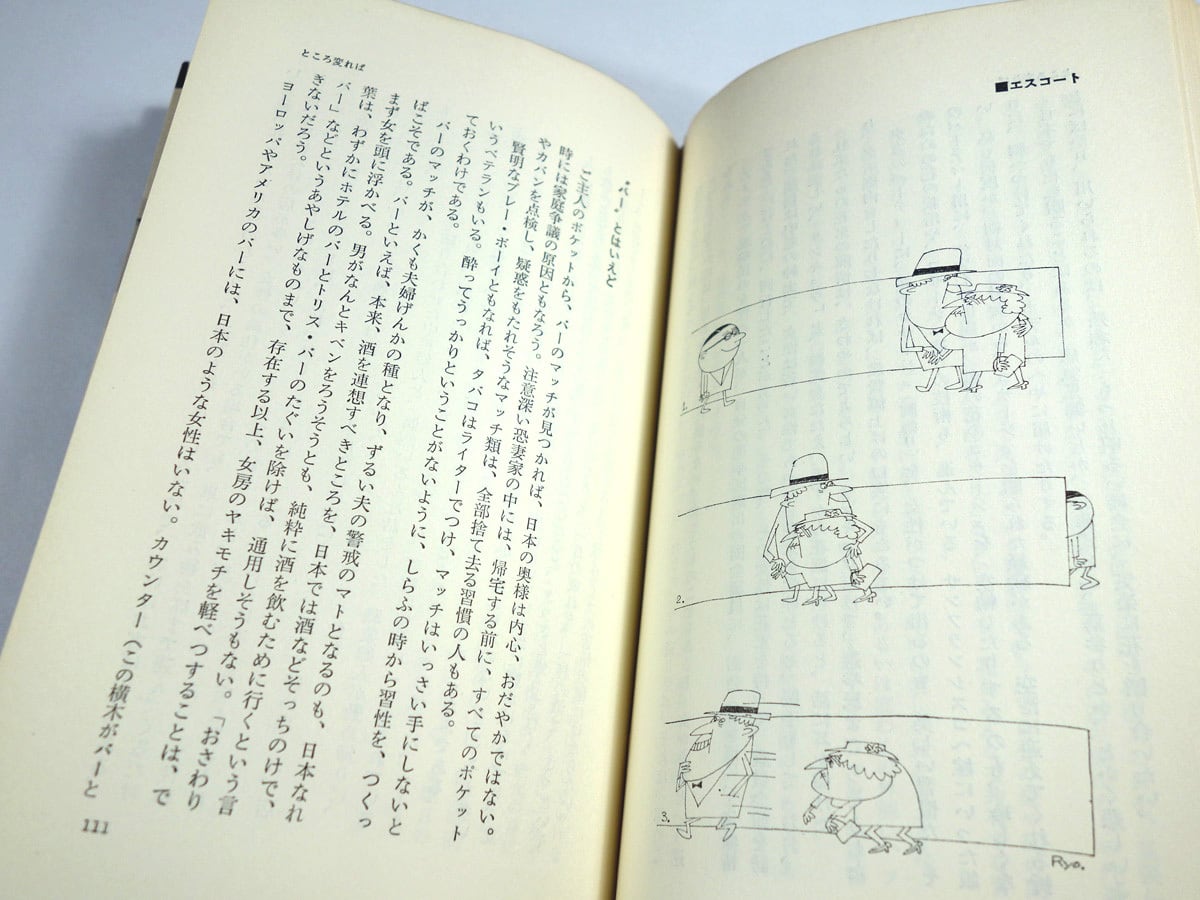 ■エスコート
1.
2.
3.
Ryo.
ところ変れば
〝バー〟とはいえど
ご主人のポケットから、バーのマッチが見つかれば、日本の奥様は内心、おだやかではない。
時には家庭争議の原因ともなろう。注意深い恐妻家の中には、帰宅する前に、すべてのポケット
やカバンを点検し、疑惑をもたれそうなマッチ類は、全部捨て去る習慣の人もある。
賢明なプレー・ボーイともなれば、タバコはライターでつけ、マッチはいっさい手にしないと
いうベテランもいる。酔ってうっかりということがないように、しらふの時から習性を、つくっ
ておくわけである。
バーのマッチが、かくも夫婦げんかの種となり、ずるい夫の警戒のマトとなるのも、日本なれ
ばこそである。バーといえば、本来、酒を連想すべきところを、日本では酒などそっちのけで、
まず女を頭に浮かべる。男がなんとキベンをろうそうとも、純粋に酒を飲むために行くという言
葉は、わずかにホテルのバーとトリス・バーのたぐいを除けば、通用しそうもない。「おさわり
バー」などというあやしげなものまで、存在する以上、女房のヤキモチを軽べつすることは、で
きないだろう。
ヨーロッパやアメリカのバーには、日本のような女性はいない。カウンター（この横木がバーと
111